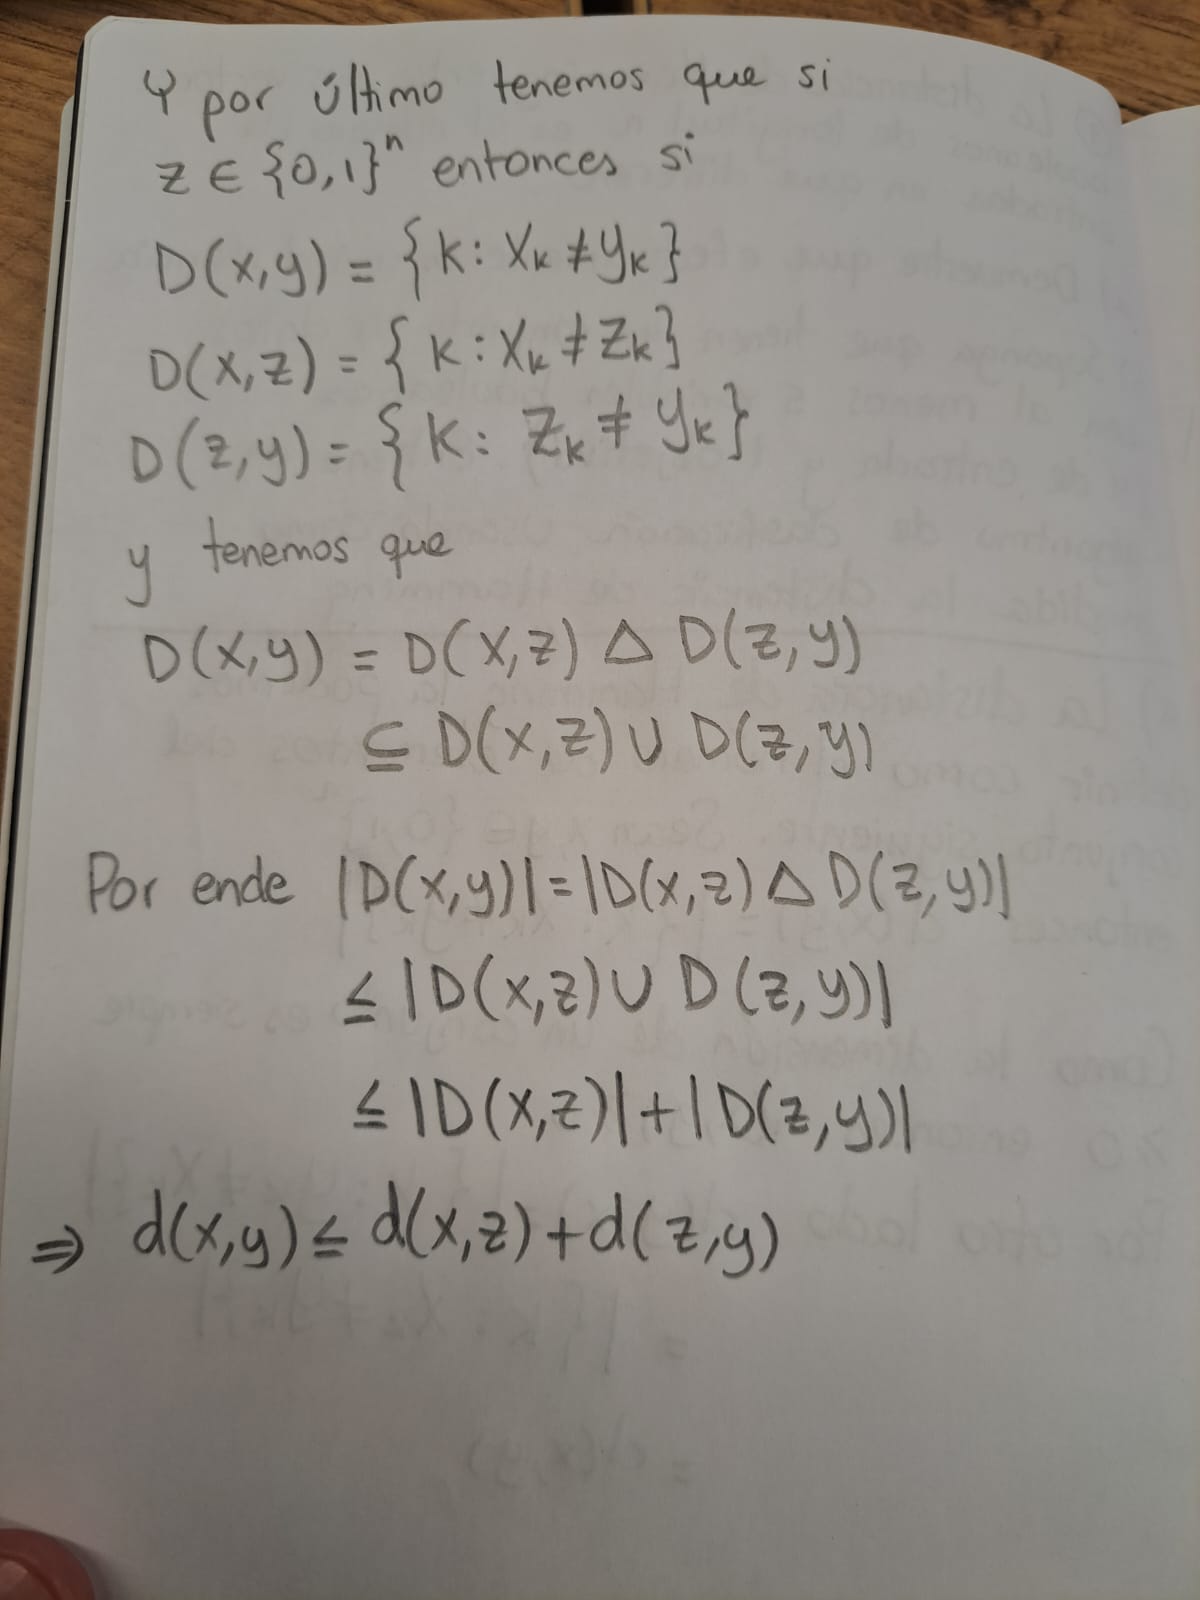 Y por último tenemos que si
z ∈ {0,1}ⁿ entonces si
D(x,y) = {k: Xₖ ≠ yₖ}
D(x,z) = {k: Xₖ ≠ Zₖ}
D(z,y) = {k: Zₖ ≠ yₖ}
y tenemos que
D(x,y) = D(x,z) Δ D(z,y)
⊆ D(x,z) ∪ D(z,y)
Por ende |D(x,y)| = |D(x,z) Δ D(z,y)|
≤ |D(x,z) ∪ D(z,y)|
≤ |D(x,z)| + |D(z,y)|
⇒ d(x,y) ≤ d(x,z) + d(z,y)